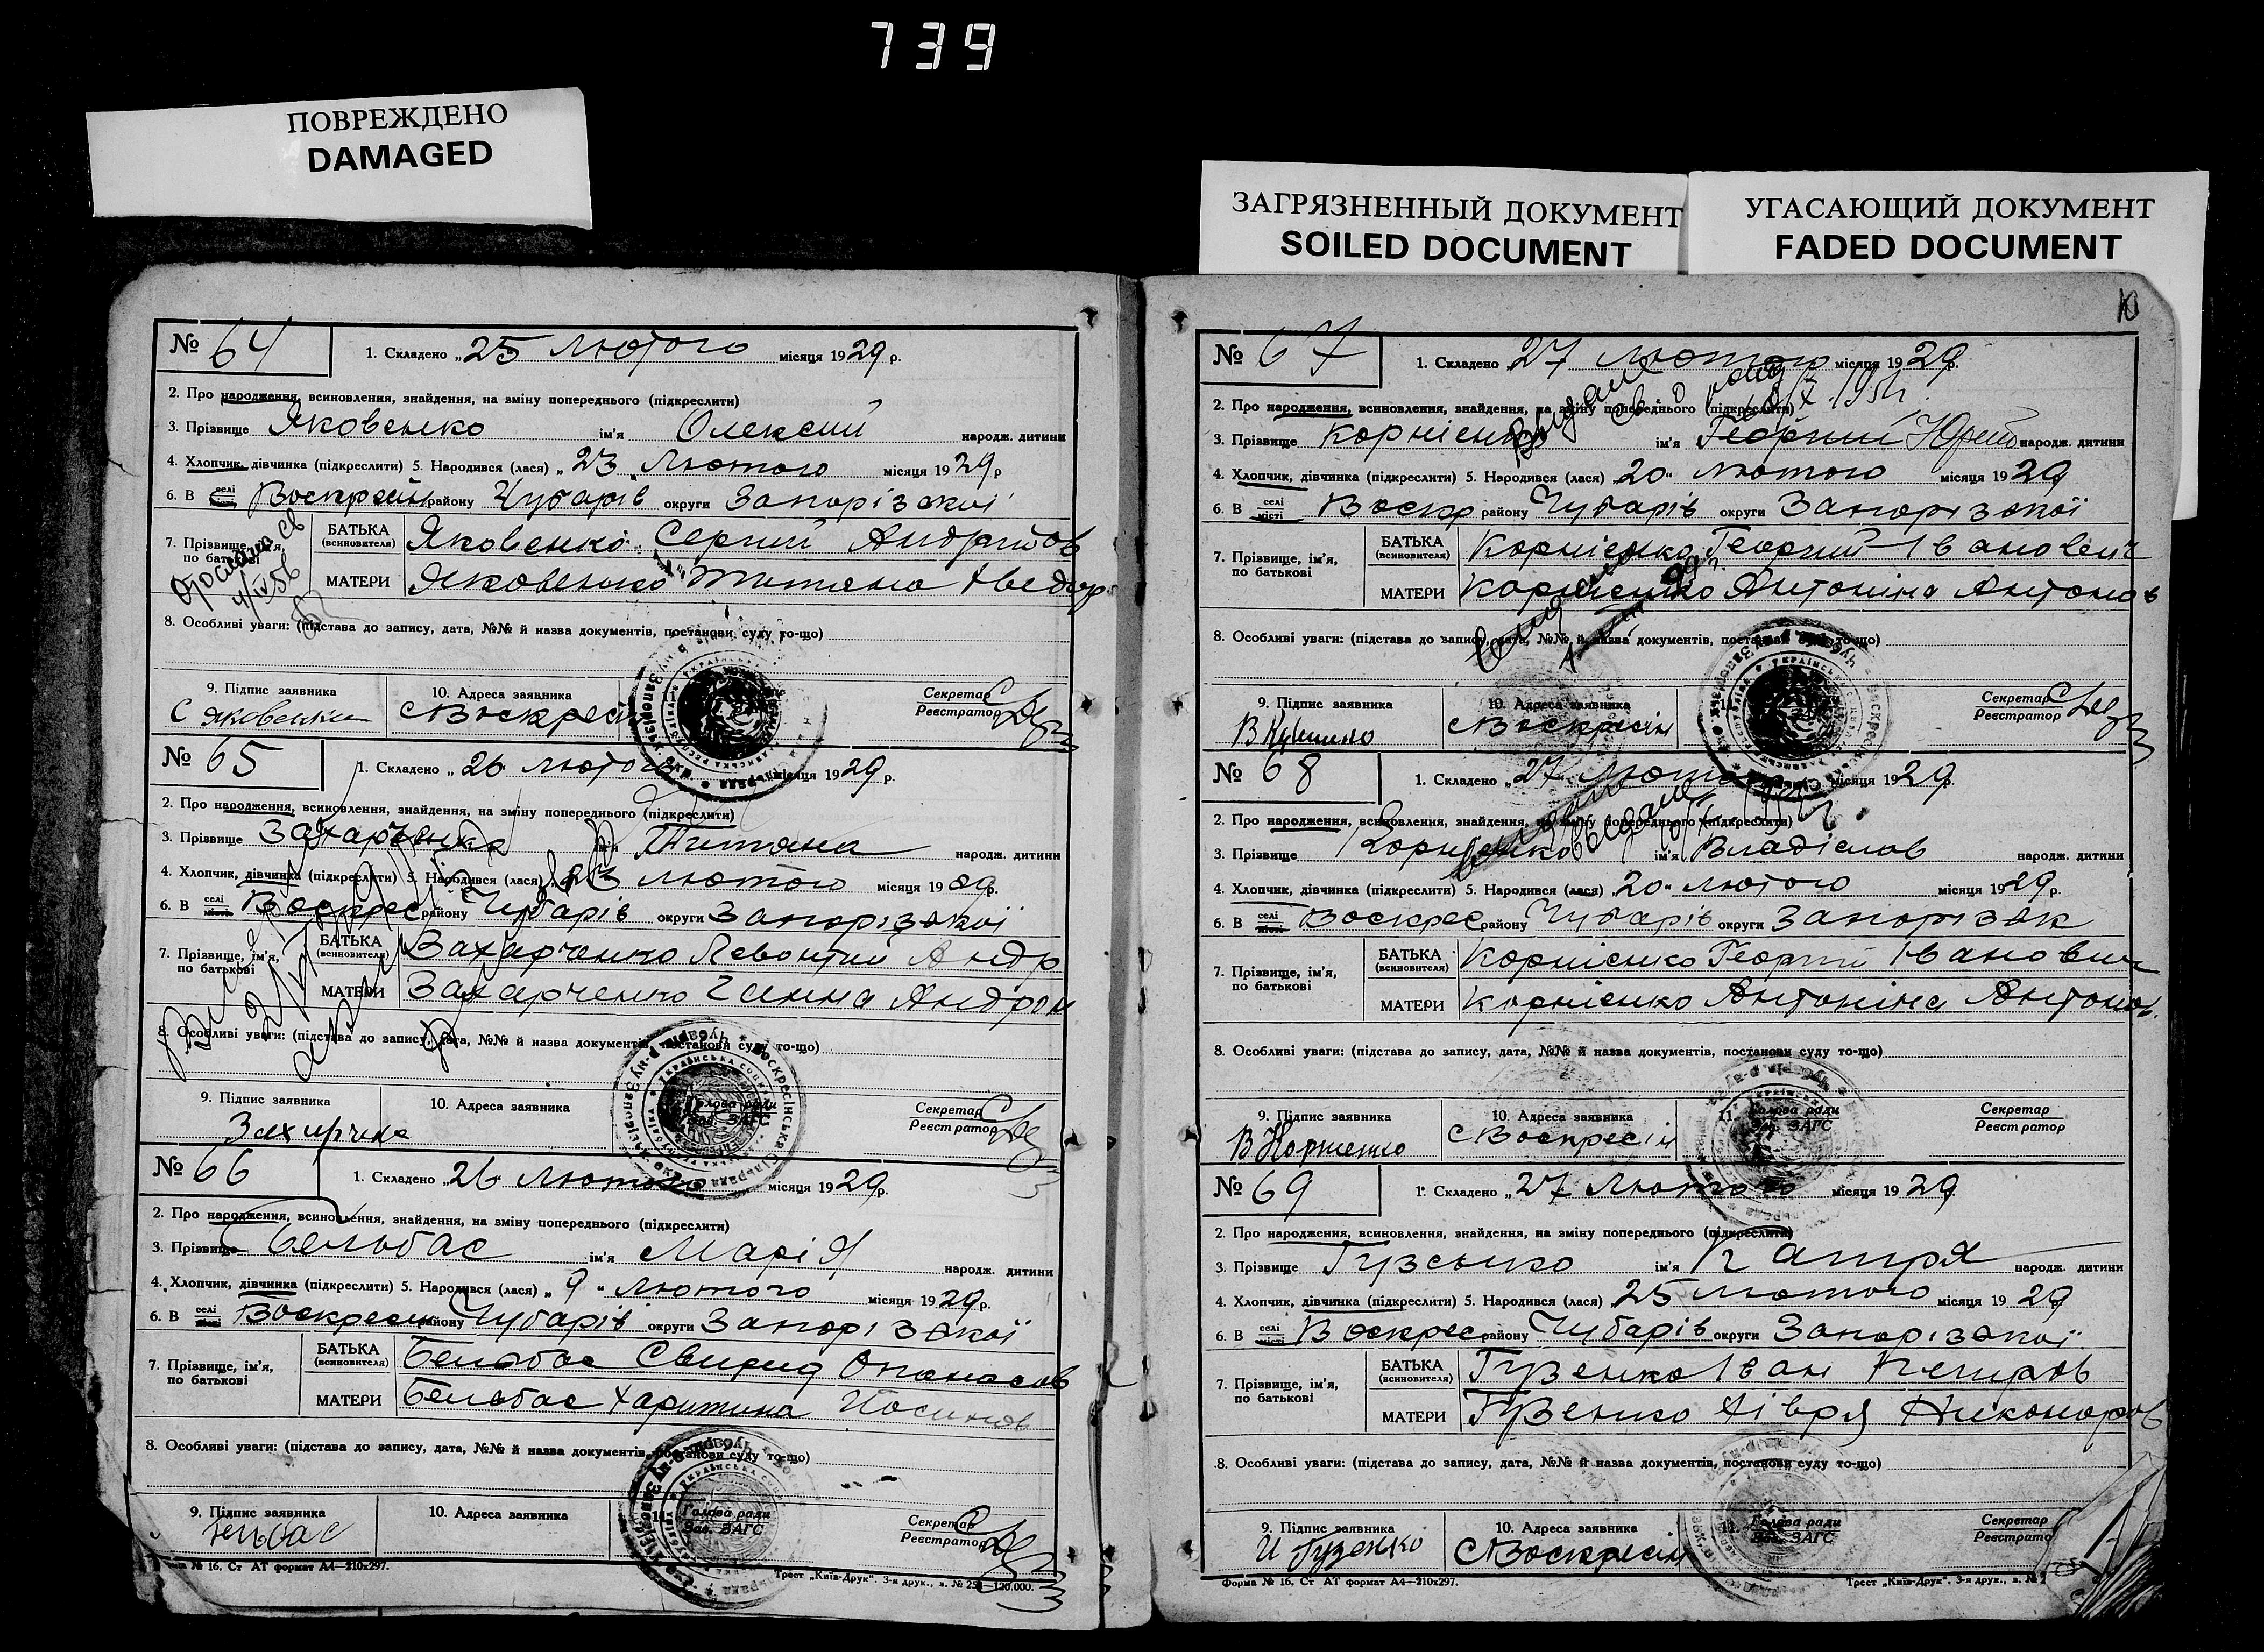 739
ПОВРЕЖДЕНО
DAMAGED
ЗАГРЯЗНЕННЫЙ ДОКУМЕНТ
SOILED DOCUMENT
УГАСАЮЩИЙ ДОКУМЕНТ
FADED DOCUMENT
№ 64
1. Складено „25 Лютого місяця 1929 р.
2. Про народження, всиновлення, знайдення, на зміну попереднього (підкреслити)
3. Прізвище Яковенко ім'я Олексий народж. дитини
4. Хлопчик, дівчинка (підкреслити) 5. Народився (лася) „23 Лютого місяця 1929 р
6. В селі місті району Чубарів округи Запорізької
7. Прізвище, ім'я, по батькові
БАТЬКА (всиновителя) Яковенко Сергий
МАТЕРИ Яковенко Титяна
8. Особливі уваги: (підстава до запису, дата, №№ й назва документів, постанови суду то-що)
9. Підпис заявника
10. Адреса заявника
Секретар
Реєстратор
С Яковенко
№ 65
1. Складено „26 лютого місяця 1929 р.
2. Про народження, всиновлення, знайдення, на зміну попереднього (підкреслити)
3. Прізвище Захарченко ім'я Титяна народж. дитини
4. Хлопчик, дівчинка (підкреслити) 5. Народився (лася) лютого місяця 19 р.
6. В селі місті Воскрес району Чубарів округи Запорізької
7. Прізвище, ім'я, по батькові
БАТЬКА (всиновителя) Захарченко Левонтий Андр
МАТЕРИ Захарченко Ганна
8. Особливі уваги: (підстава до запису, дата, №№ й назва документів, постанови суду то-що)
9. Підпис заявника
10. Адреса заявника
Голова ради
Зав. ЗАГС
Секретар
Реєстратор
№ 66
1. Складено „26 лютого місяця 1929 р.
2. Про народження, всиновлення, знайдення, на зміну попереднього (підкреслити)
3. Прізвище Бельбас ім'я Марія народж. дитини
4. Хлопчик, дівчинка (підкреслити) 5. Народився (лася) „9" лютого місяця 1929 р.
6. В селі місті району Чубарів округи Запорізької
7. Прізвище, ім'я, по батькові
БАТЬКА (всиновителя) Бельбас Свирид Опанасов
МАТЕРИ Бельбас Харитина
8. Особливі уваги: (підстава до запису, дата, №№ й назва документів, постанови суду то-що)
9. Підпис заявника
10. Адреса заявника
11. Голова ради
Зав. ЗАГС
Секретар
Реєстратор
Форма № 16. Ст АТ формат А4—210х297.
Трест „Київ-Друк". 3-я друк., з. № 25 —120.000.
№ 67
1. Складено „27 лютого місяця 1929 р.
2. Про народження, всиновлення, знайдення, на зміну попереднього (підкреслити)
3. Прізвище Корнієнко ім'я Георгий Юрий народж. дитини
4. Хлопчик, дівчинка (підкреслити) 5. Народився (лася) „20" лютого місяця 1929
6. В селі місті Воскр району Чубарів округи Запорізької
7. Прізвище, ім'я, по батькові
БАТЬКА (всиновителя) Корнієнко Георгий Іванович
МАТЕРИ Корнієнко Антоніна Антонов
8. Особливі уваги: (підстава до запису, дата, №№ й назва документів, постанови суду то-що)
9. Підпис заявника
10. Адреса заявника
Секретар
Реєстратор
с Воскресін
№ 68
1. Складено „27 Лютого місяця 1929 р.
2. Про народження, всиновлення, знайдення, на зміну попереднього (підкреслити)
3. Прізвище Корнієнко ім'я Владіслав народж. дитини
4. Хлопчик, дівчинка (підкреслити) 5. Народився (лася) „20" лютого місяця 1929 р.
6. В селі місті Воскрес району Чубарів округи Запорізьк
7. Прізвище, ім'я, по батькові
БАТЬКА (всиновителя) Корнієнко Георгій Іванович
МАТЕРИ Корнієнко Антоніна Антонов.
8. Особливі уваги: (підстава до запису, дата, №№ й назва документів, постанови суду то-що)
9. Підпис заявника
10. Адреса заявника
11. Голова ради
Зав. ЗАГС
Секретар
Реєстратор
с Воскресін
№ 69
1. Складено „27 Лютого місяця 1929
2. Про народження, всиновлення, знайдення, на зміну попереднього (підкреслити)
3. Прізвище Гузенко ім'я Катря народж. дитини
4. Хлопчик, дівчинка (підкреслити) 5. Народився (лася) 25 лютого місяця 1929
6. В селі місті Воскрес району Чубарів округи Запорізької
7. Прізвище, ім'я, по батькові
БАТЬКА (всиновителя) Гузенко Іван
МАТЕРИ Гузенко Никоноров
8. Особливі уваги: (підстава до запису, дата, №№ й назва документів, постанови суду то-що)
9. Підпис заявника
10. Адреса заявника
11. Голова ради
Зав. ЗАГС
Секретар
Реєстратор
И Гузенко
с Воскресін
Форма № 16. Ст АТ формат А4—210х297.
Трест „Київ-Друк". 3-я друк., з. №